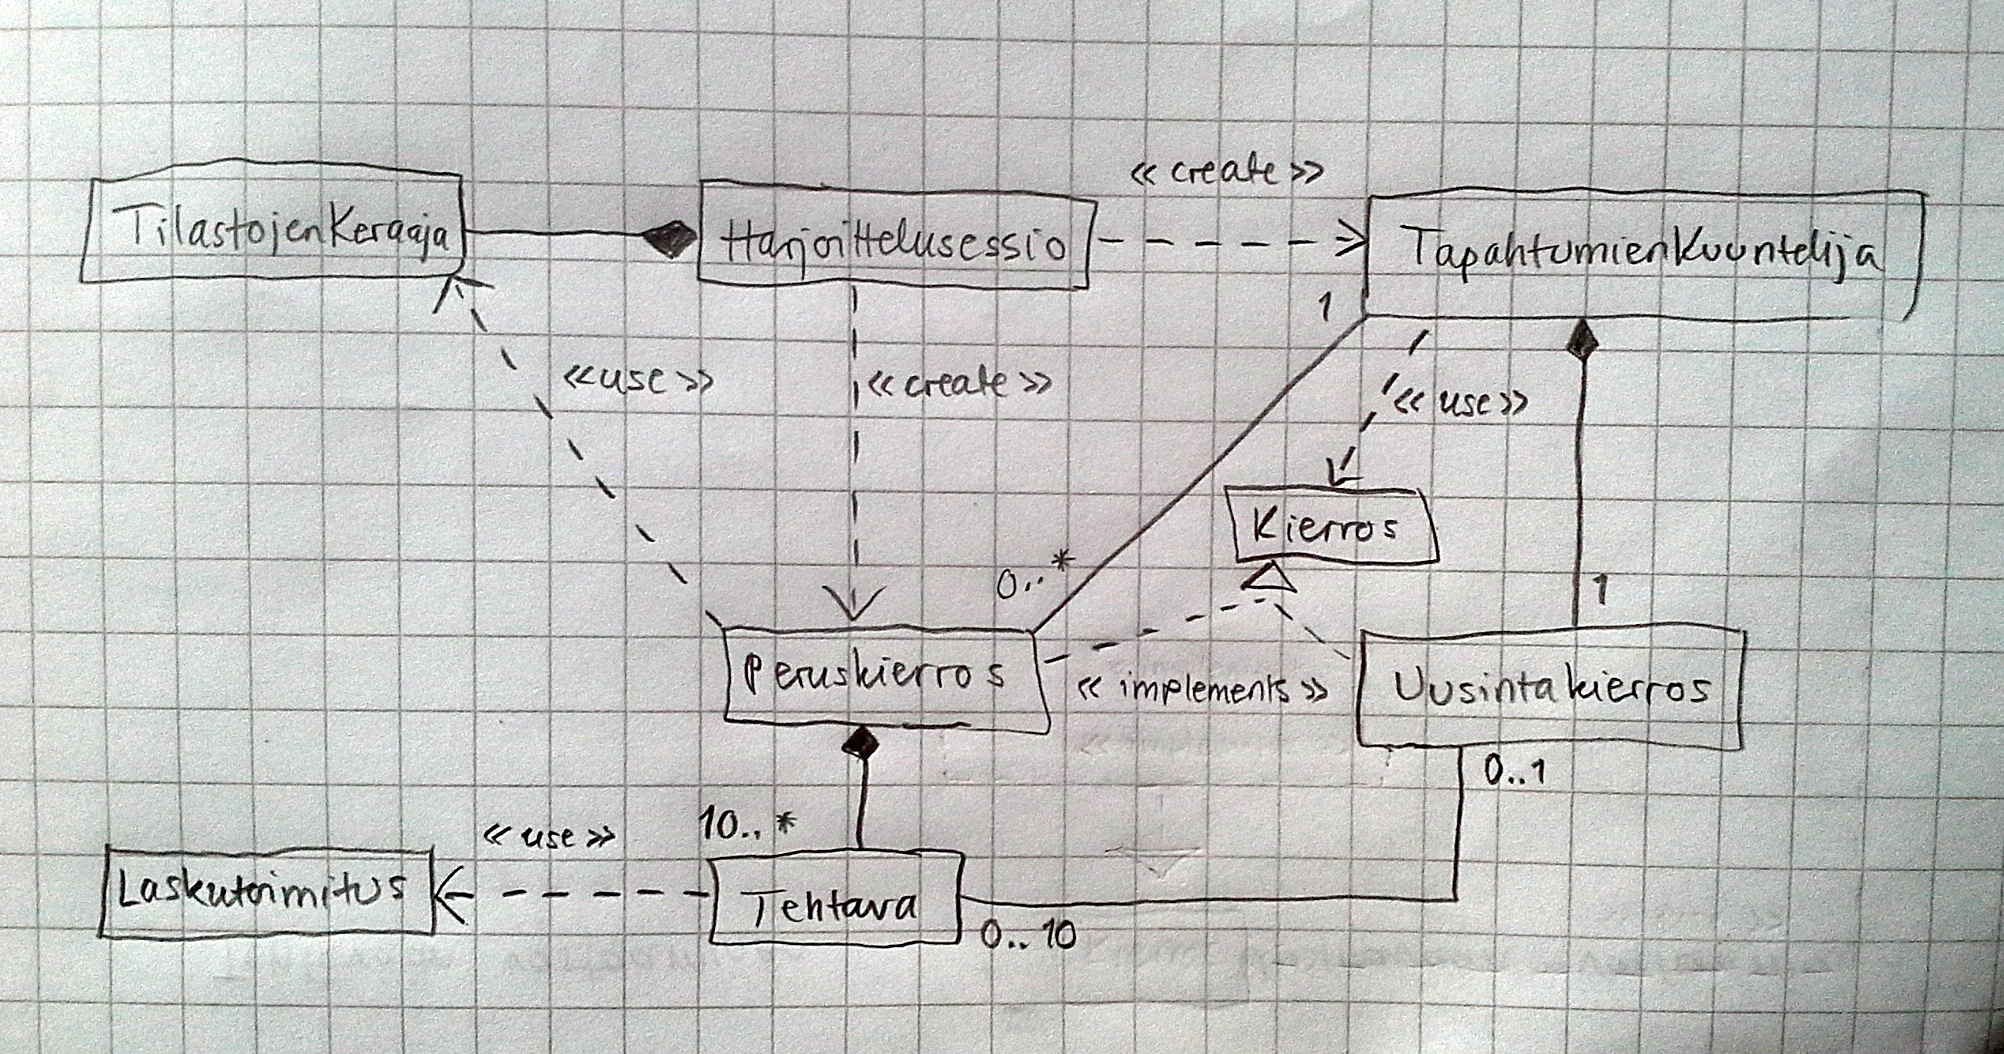 << create >>
TilastojenKeraaja
Harjoittelusessio
TapahtumienKuuntelija
1
<< use >>
<< create >>
<< use >>
Kierros
0..*
1
Peruskierros
<< implements >>
Uusintakierros
0..1
10..*
<< use >>
Laskutoimitus
Tehtava
0..10